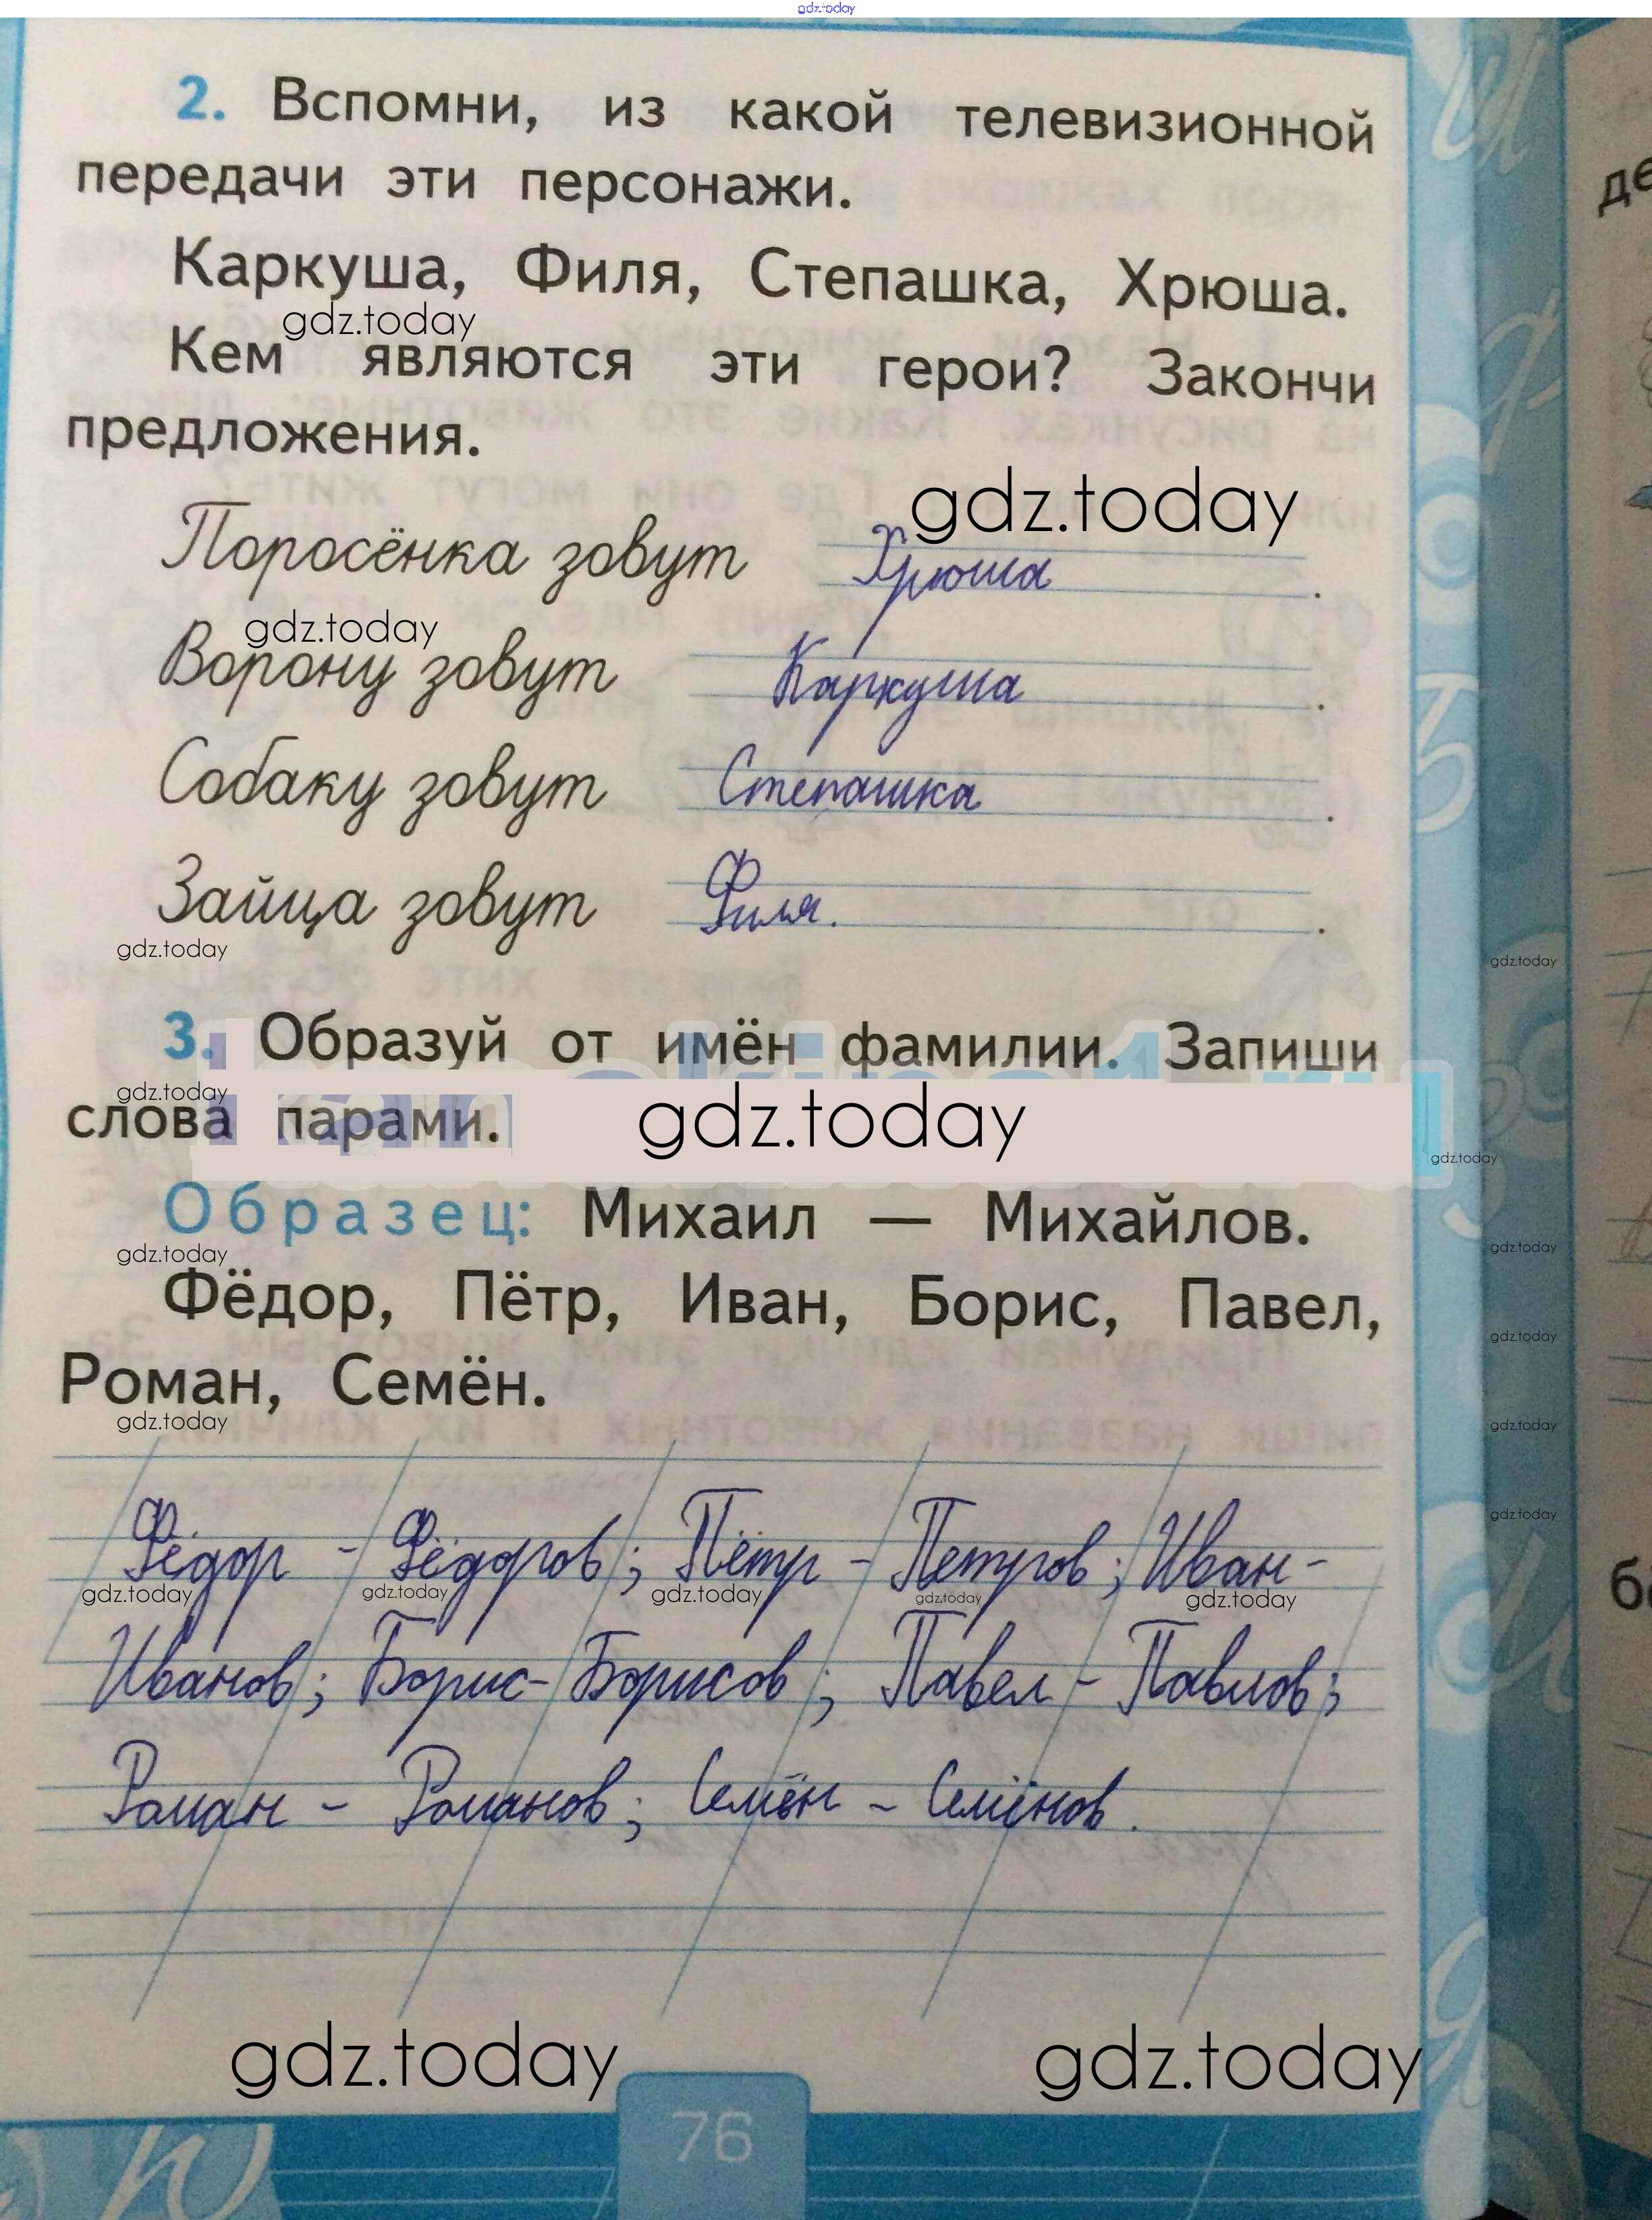 gdz.today
2. Вспомни, из какой телевизионной
передачи эти персонажи.
Каркуша, Филя, Степашка, Хрюша.
gdz.today
Кем являются эти герои? Закончи
предложения.
gdz.today
Поросёнка зовут Хрюша.
gdz.today
Ворону зовут Каркуша.
Собаку зовут Степашка.
Зайца зовут Филя. .
gdz.today
gdz.today
3. Образуй от имён фамилии. Запиши
gdz.today
слова парами.
gdz.today
gdz.today
Образец: Михаил — Михайлов.
gdz.today
gdz.today
Фёдор, Пётр, Иван, Борис, Павел,
gdz.today
Роман, Семён.
gdz.today
gdz.today
gdz.today
Фёдор - Фёдоров; Пётр - Петров; Иван-
gdz.today gdz.today gdz.today gdz.today gdz.today
Иванов; Борис- Борисов; Павел - Павлов;
Роман - Романов; Семён - Семёнов.
gdz.today gdz.today
76
де
ба